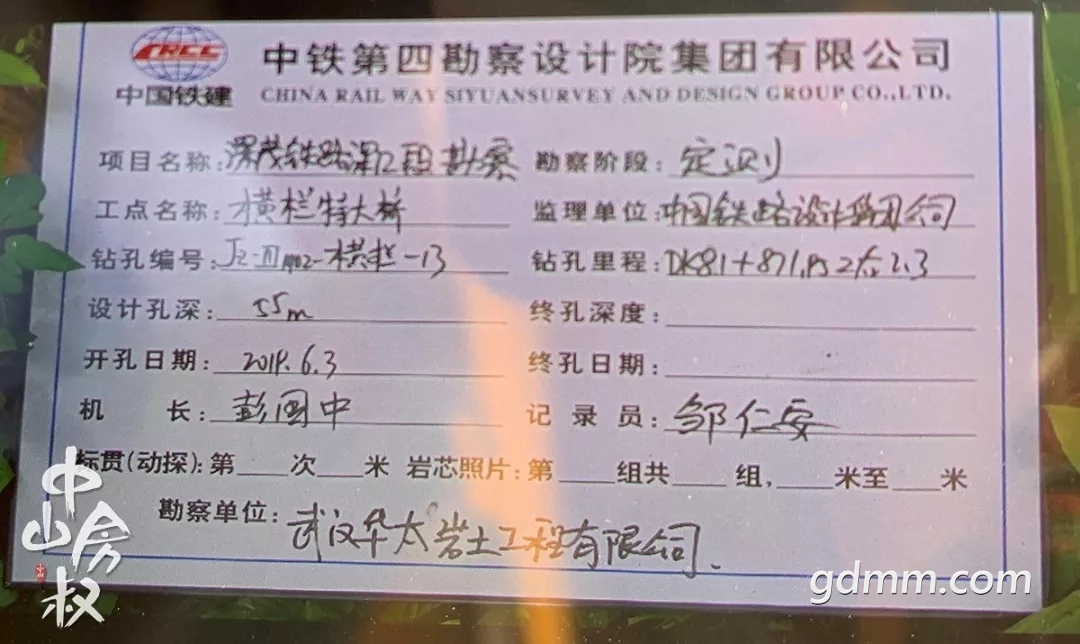 CRCC
中国铁建
中铁第四勘察设计院集团有限公司
CHINA RAIL WAY SIYUANSURVEY AND DESIGN GROUP CO.,LTD.
项目名称:深茂铁路深江段勘察 勘察阶段:定测
工点名称:横栏特大桥 监理单位:中国铁路设计集团公司
钻孔编号: 横栏-13 钻孔里程:DK81+871.
设计孔深:55m 终孔深度:
开孔日期:2019.6.3 终孔日期:
机 长:彭国中 记录员:邹仁安
标贯(动探):第 次 米 岩芯照片:第 组共 组, 米至 米
勘察单位:武汉华太岩土工程有限公司.
中山房权
gdmm.com